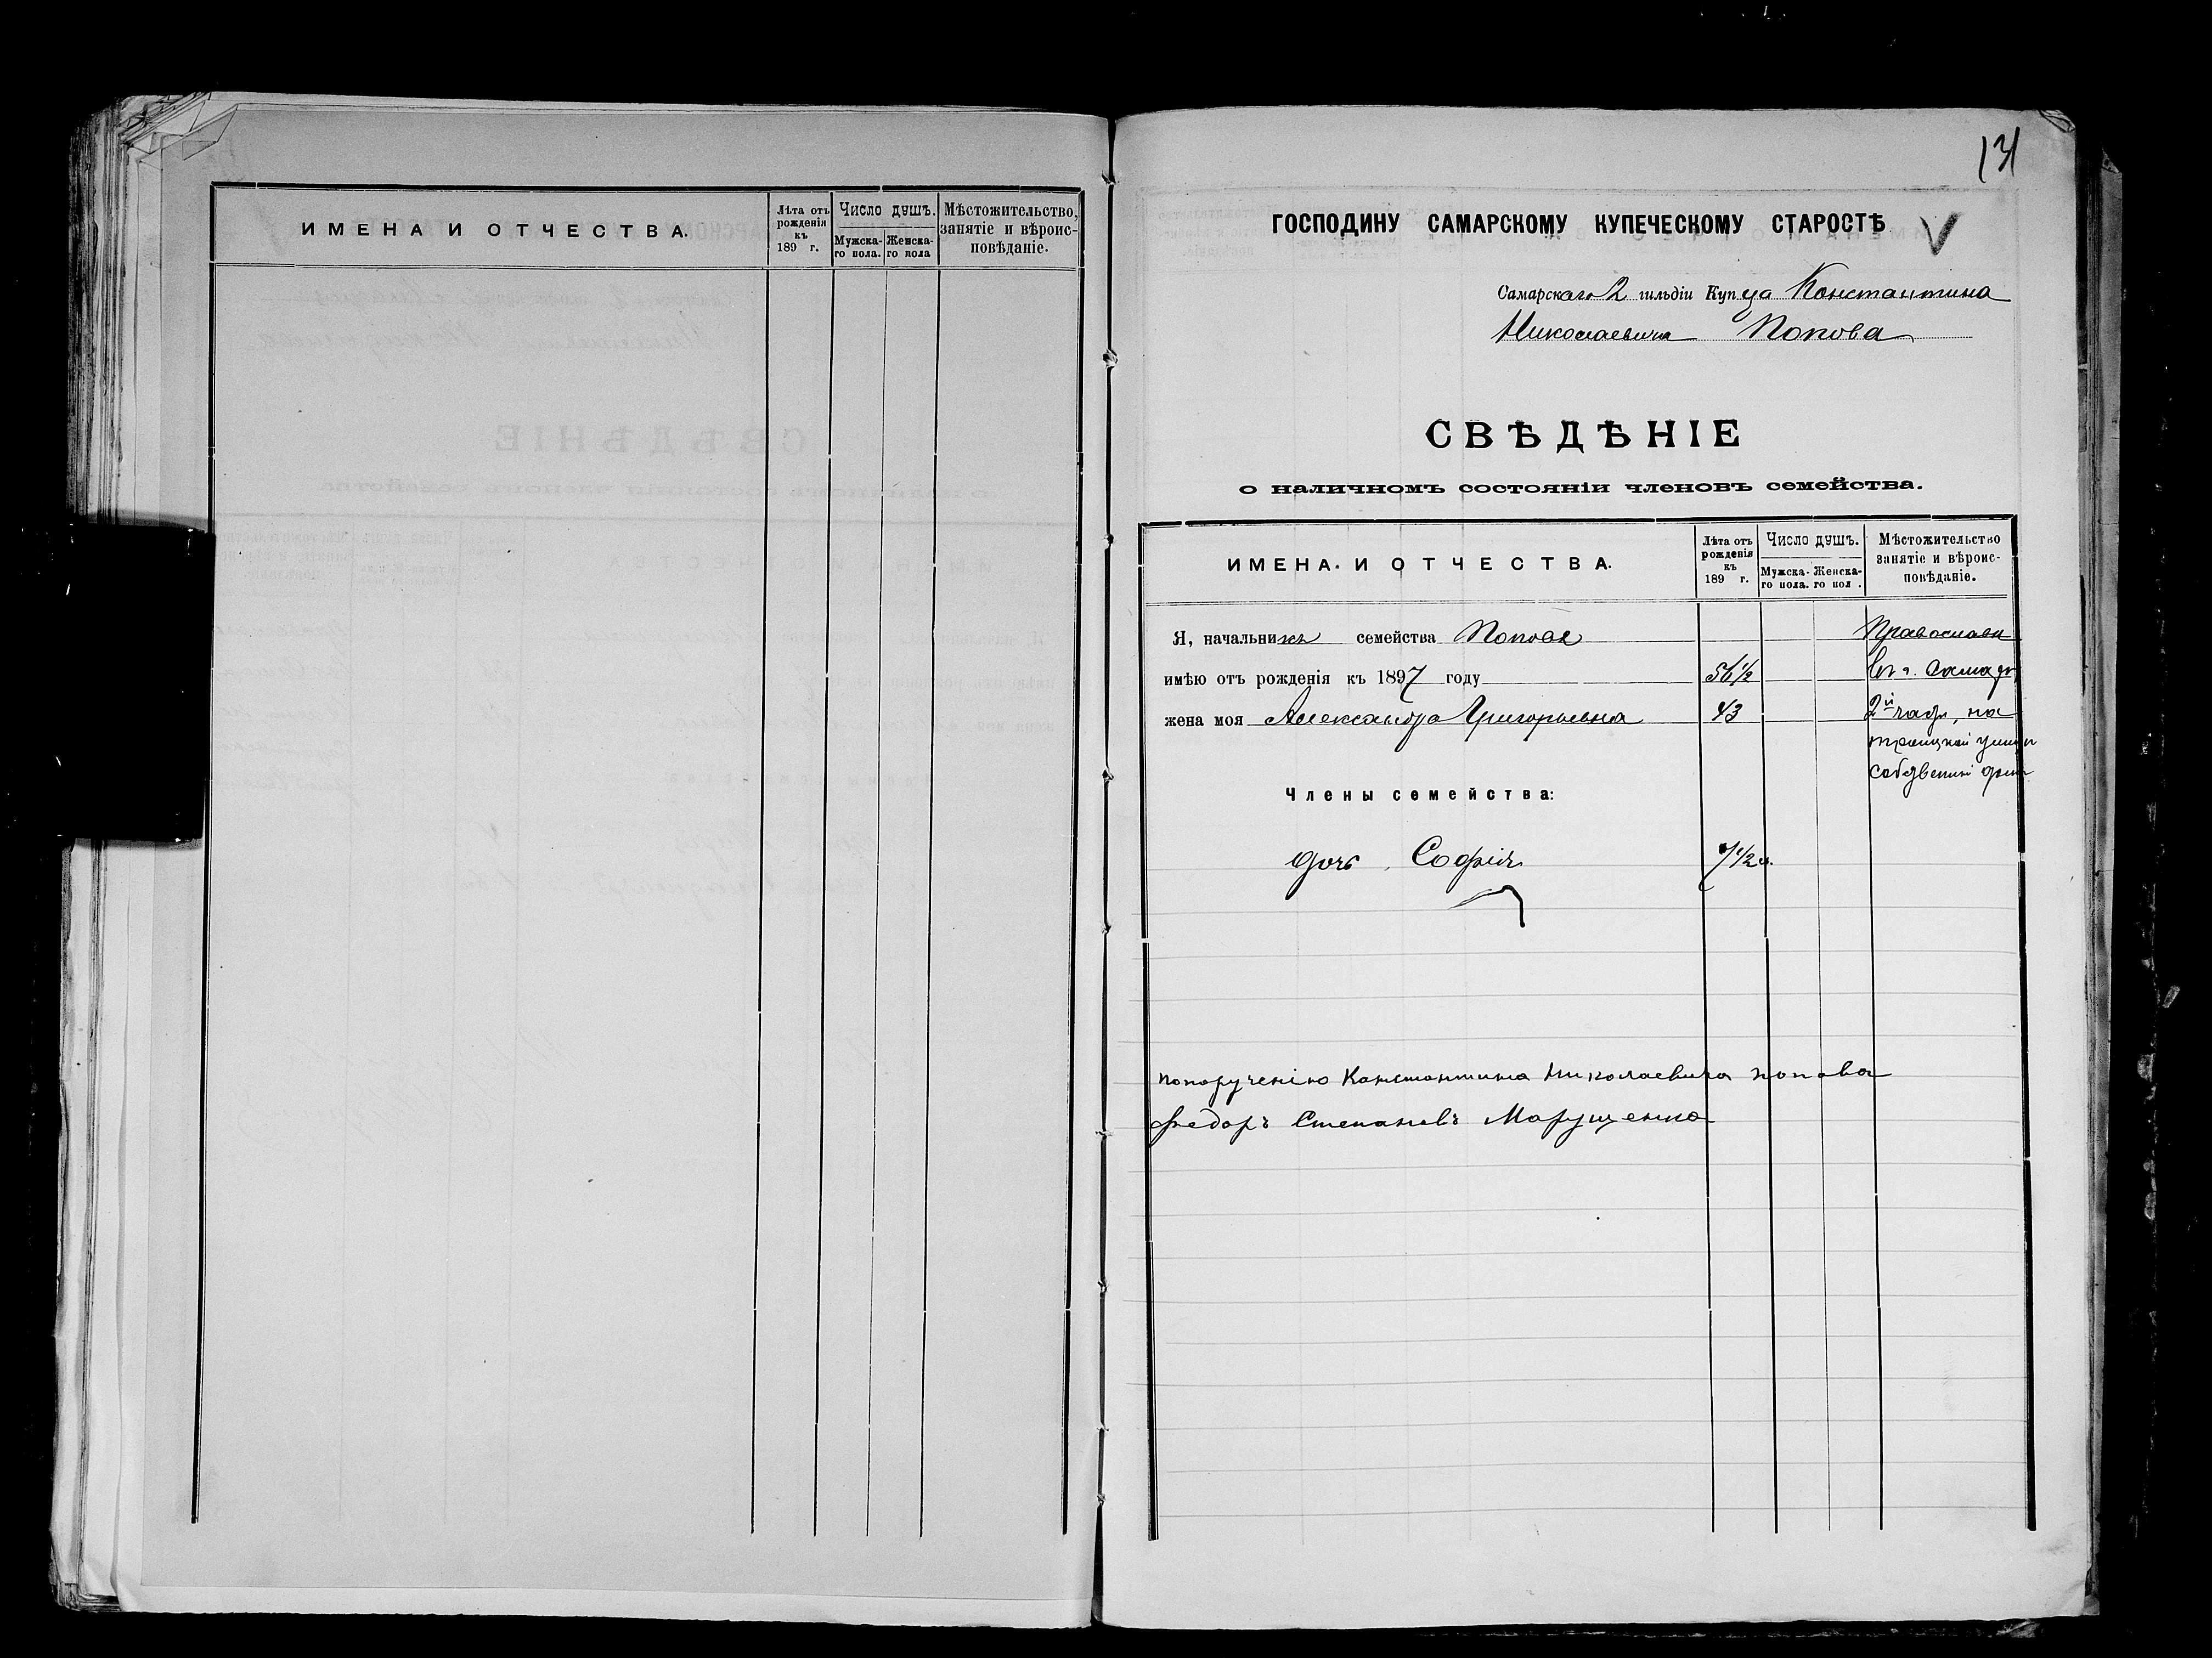 ИМЕНА И ОТЧЕСТВА.
Лѣта отъ рожденія къ 189 г.
Число душъ.
Мужска-го пола.
Женска-го пола
Мѣстожительство, занятіе и вѣроис-повѣданіе.
131
ГОСПОДИНУ САМАРСКОМУ КУПЕЧЕСКОМУ СТАРОСТѢ
Самарскаго 2 гильдіи Купца Константина
Николаевича Попова
СВѢДѢНІЕ
о наличномъ состояніи членовъ семейства.
ИМЕНА И ОТЧЕСТВА.
Лѣта отъ рожденія къ 189 г.
Число душъ.
Мужска-го пола.
Женска-го пол .
Мѣстожительство занятіе и вѣроис-повѣданіе.
Я, начальникъ семейства Попов Православн
имѣю отъ рожденія къ 1897 году 56 1/2 въ г. Самарѣ
жена моя Александра Григорьевна 43 2й части, на
троицкой улицѣ
Члены семейства:
дочь Софія 7 1/2
попорученію Константина Николаевича попова
Федоръ Степановъ Марущенко